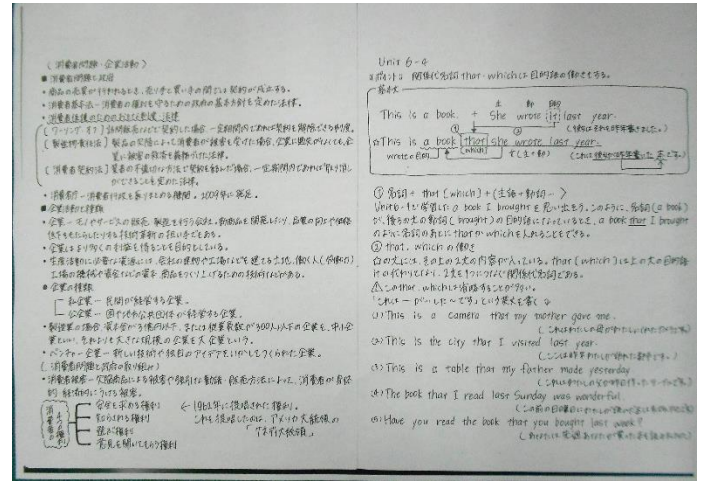 (消費者問題・企業活動)
■消費者問題と政府
・商品の売買が行われるとき、売り手と買い手の間では契約が成立する。
・消費者基本法－消費者の権利を守るための政府の基本方針を定めた法律。
・消費者保護のための
[クーリング・オフ] 訪問販売などで契約した場合、一定期間内であれば契約を解除できる制度。
[製造物責任法] 製品の欠陥によって消費者が被害を受けた場合、企業に過失がなくても、企
業に被害の救済を義務付けた法律。
[消費者契約法] 業者の不適切な方法で契約を結んだ場合、一定期間内であれば取り消し
ができることを定めた法律。
・消費者庁－消費者行政を 機関。2009年に発足。
■企業活動と種類
・企業－モノやサービスの販売、製造を行う 。新商品を開発したり、品質の向上や価格
低下をもたらしたりする技術革新の担い手でもある。
・企業はより多くの利益を得ることを目的としている。
・生産活動に必要な資源には、会社の建物や工場などを建てる土地、働く人(労働力)
工場の機械や資金などの資本、商品をつくり上げるための技術などがある。
■企業の種類
私企業－民間が経営する企業。
公企業－国や地方公共団体が経営する企業。
・製造業の場合、資本金が3億円以下、または従業員数が300人以下の企業を、中小企
業といい、それよりも大きな規模の企業を大企業という。
・ベンチャー企業－新しい技術や独自のアイデアをいかしてつくられた企業。
(消費者問題と政府の取り組み)
・消費者被害－欠陥商品による被害や強引な勧誘・販売方法によって、消費者が身体
的・経済的にうける被害。
消費者の4つの権利
安全を求める権利 ← 1962年に提唱された権利。
知らされる権利 これを提唱したのは、アメリカ大統領の
選ぶ権利 「ケネディ大統領」
意見を聞いてもらう権利
Unit 6-4
ポイント 関係代名詞that・whichは目的語の働きもする。
基本文
主 動 目的
This is a book. + She wrote it last year.
① ② (彼女はそれを昨年書きました。)
☆This is a book that she wrote last year.
which
wroteの目的 (主+動) (これは彼女が昨年書いた本です。)
① 名詞 + that [which] + (主語+動詞…)
Unite6-1で学習した a book I brought を思い出そう。このように、名詞(a book)
が、後ろの文の動詞(brought)の目的語になっているとき、a book that I brought
のように名詞のあとにthatかwhichを入れることもできる。
② that, whichの働き
☆の文には、その上の2文の内容が入っている。that[which]は上の文の目的語
itの代わりとなり、2文を1つにつなぐ関係代名詞である。
⚠このthat、whichは省略することが多い。
「これは－が…した～です」という英文を書く
(1) This is a camera that my mother gave me.
(これはわたしの母がわたしにくれたカメラです)
(2) This is the city that I visited last year.
(ここは昨年わたしが訪れた都市です。)
(3) This is a table that my father made yesterday
(これはわたしの父が昨日作ったテーブルです)
(4) The book that I read last Sunday was wonderful.
(この前の日曜日にわたしが読んだ本は )
(5) Have you read the book that you bought last week?
(あなたは先週あなたが買った本を )